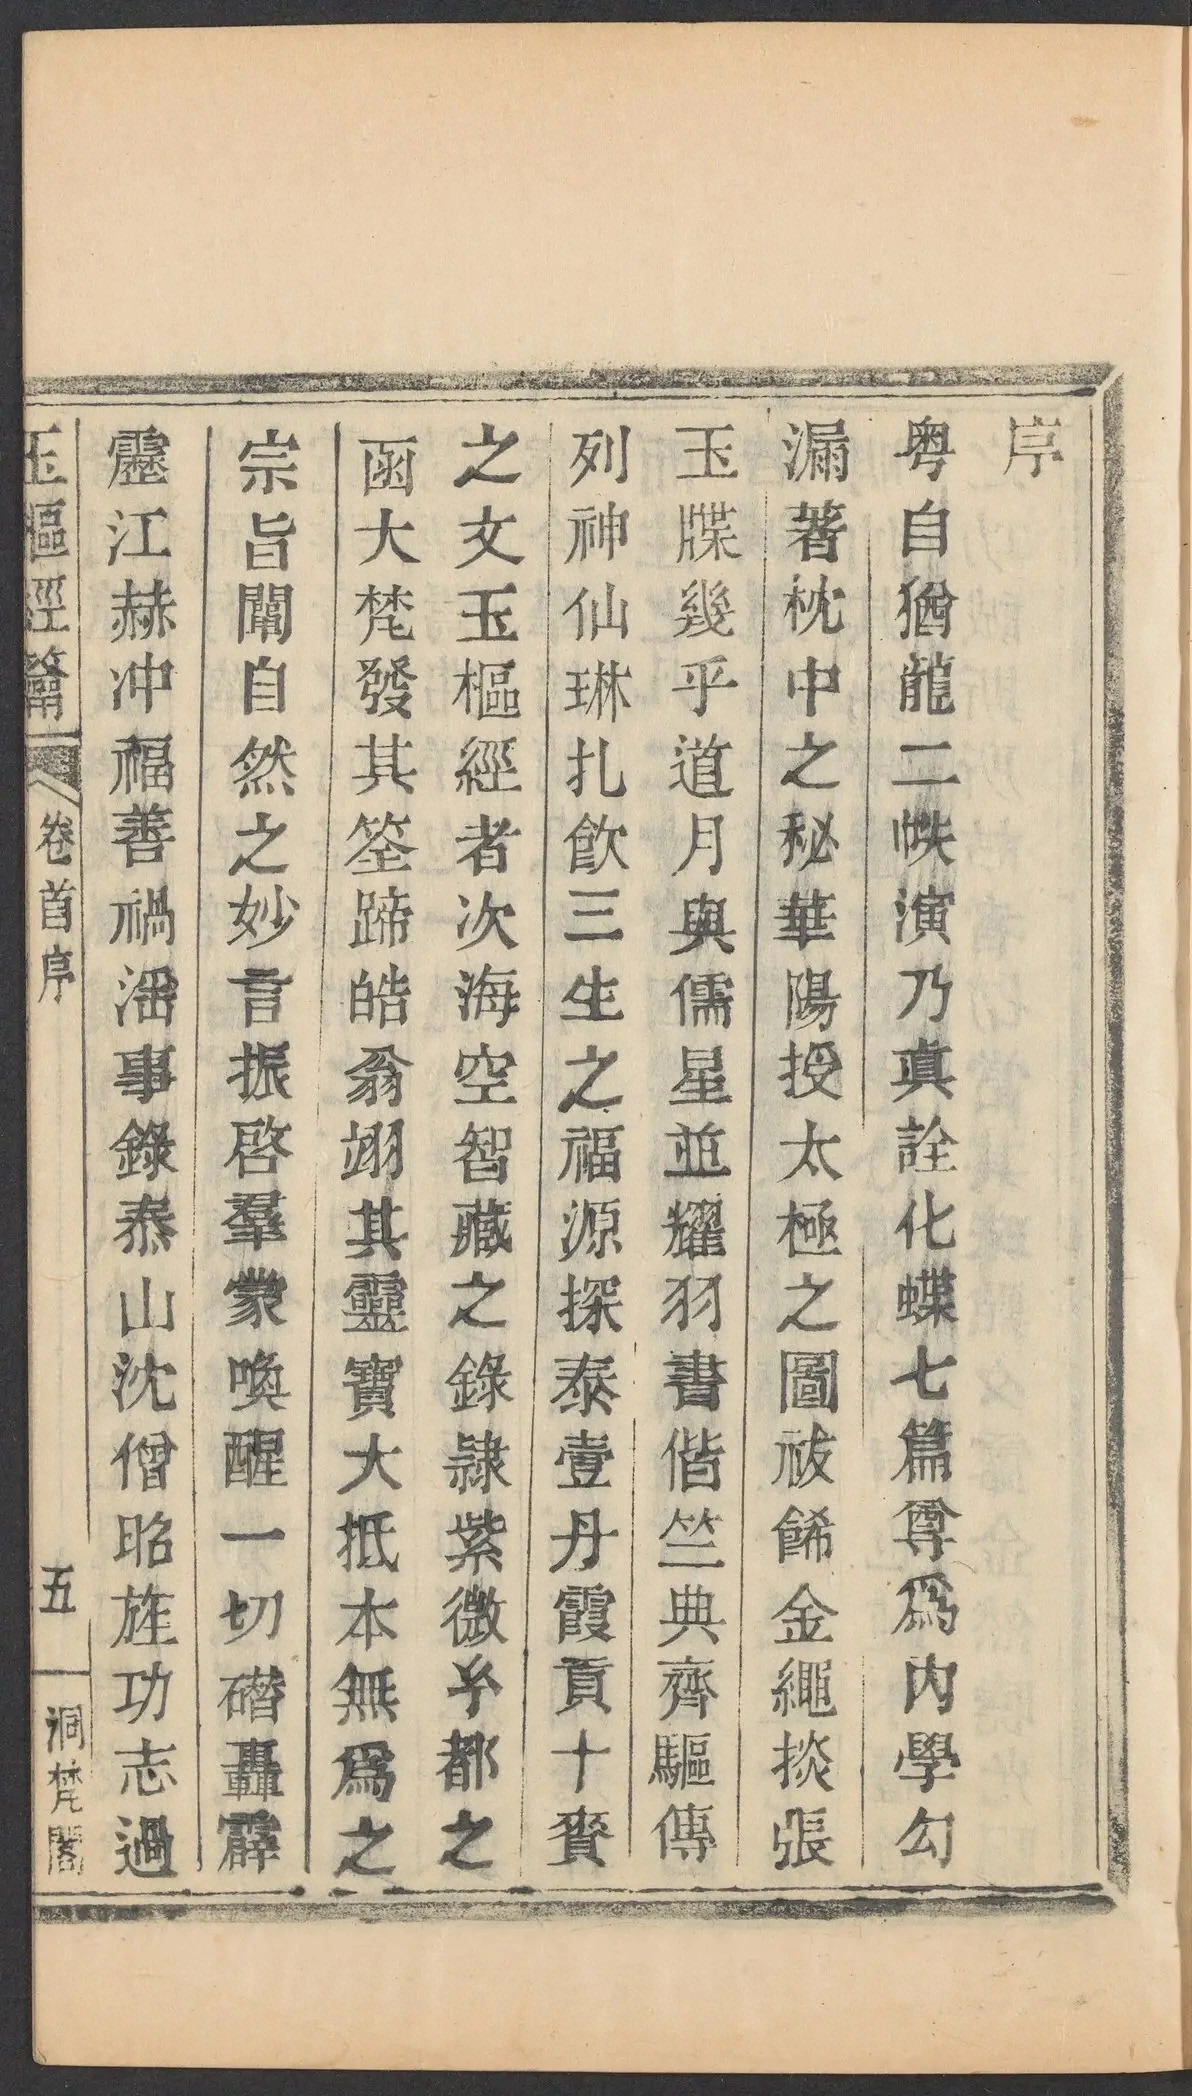 序
粤自猶龍二帙演乃真詮化蝶七篇尊爲内學勾
漏著枕中之秘華陽授太極之圖祓飾金繩掞張
玉牒幾乎道月與儒星並耀羽書偕竺典齊驅傳
列神仙琳扎飲三生之福源探泰壹丹霞貢十賚
之文玉樞經者次海空智藏之錄隷紫微乎都之
函大梵發其筌蹄皓翁翊其靈寶大抵本無爲之
宗旨闡自然之妙言振啓羣蒙喚醒一切礚轟霹
靂江赫冲福善禍滛事錄泰山沈僧昭旌功志過
玉樞經籥
卷首序
五
洞梵閣